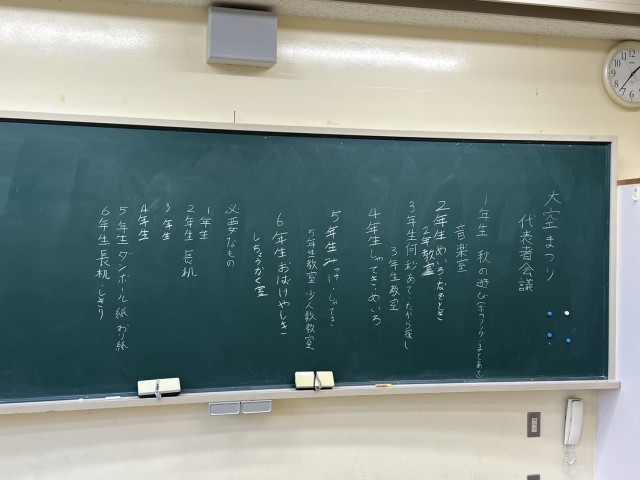 大空まつり
代表者会議
1年生 秋の遊び(まとあて)
音楽室
2年生めいろ・なぞとき
2年教室
3年生何秒あて・たから探し
3年生教室
4年生しゃてき・めいろ
5年生 しゃてき
5年生教室・少人数教室
6年生おばけやしき
しちょうかく室
必要なもの
1年生
2年生 長机
3年生
4年生
5年生ダンボール紙 おり紙
6年生長机・しきり
12